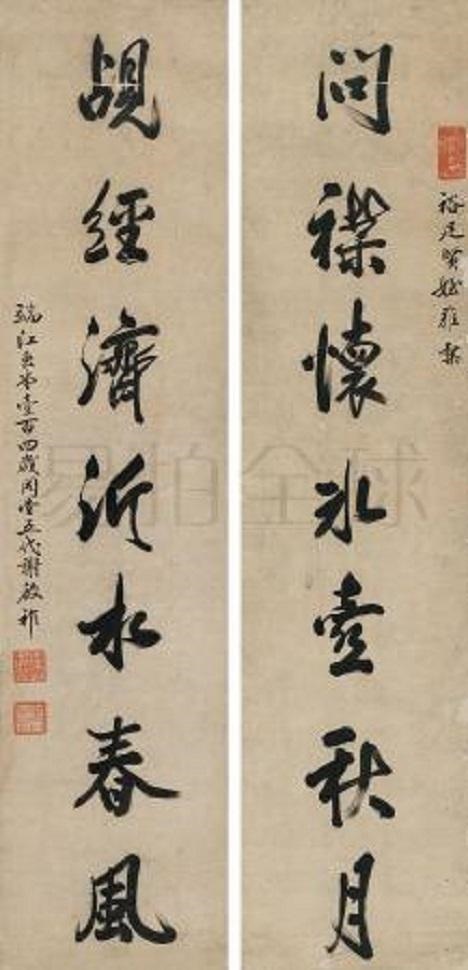 賢姪雅
問襟懷冰壺秋月
覘經濟沂水春風
端江壹百四歲同堂五代謝啟祚
易拍全球